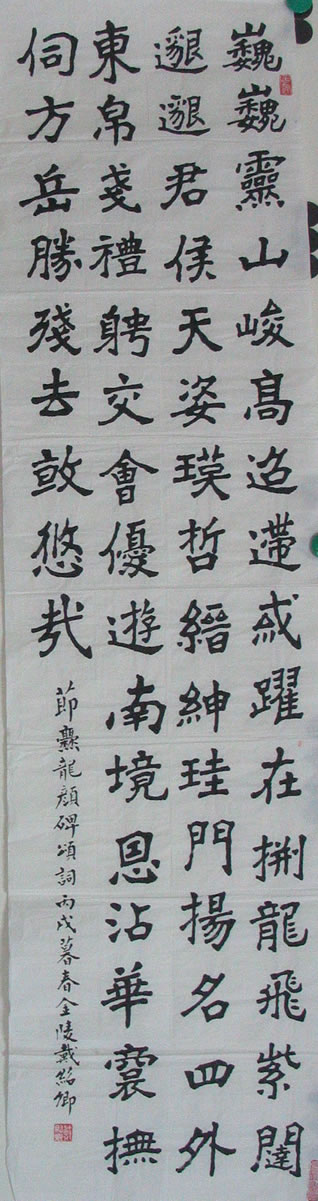 巍巍靈山峻高迢遰或躍在淵龍飛紫闥
邈邈君侯天姿瑛哲縉紳珪門揚名四外
束帛戔禮聘交會優遊南境恩沾華裔撫
伺方岳勝殘去煞悠哉
節爨龍顏碑頌詞丙戌暮春金陵戴紹卿